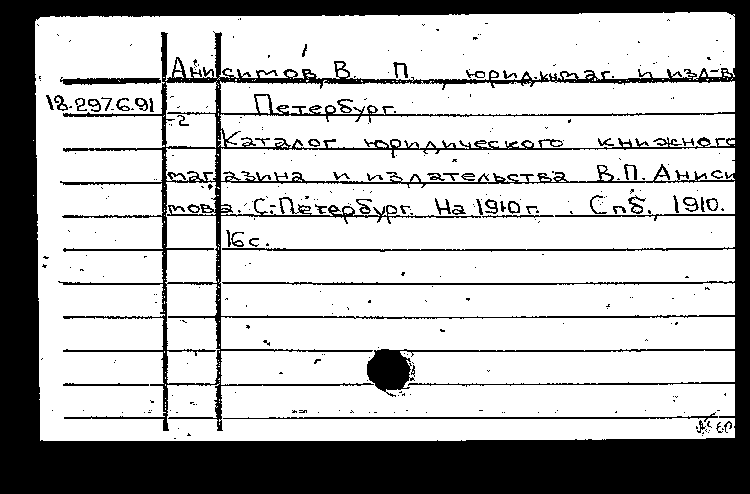 Анисимов, В. П., юрид. маг. и изд-в
18.297.6.91 Петербург.
-2
Каталог юридического книжного
магазина и издательства В.П. Аниси
мова. С.-Петербург. На 1910 г. Спб., 1910.
16 с.